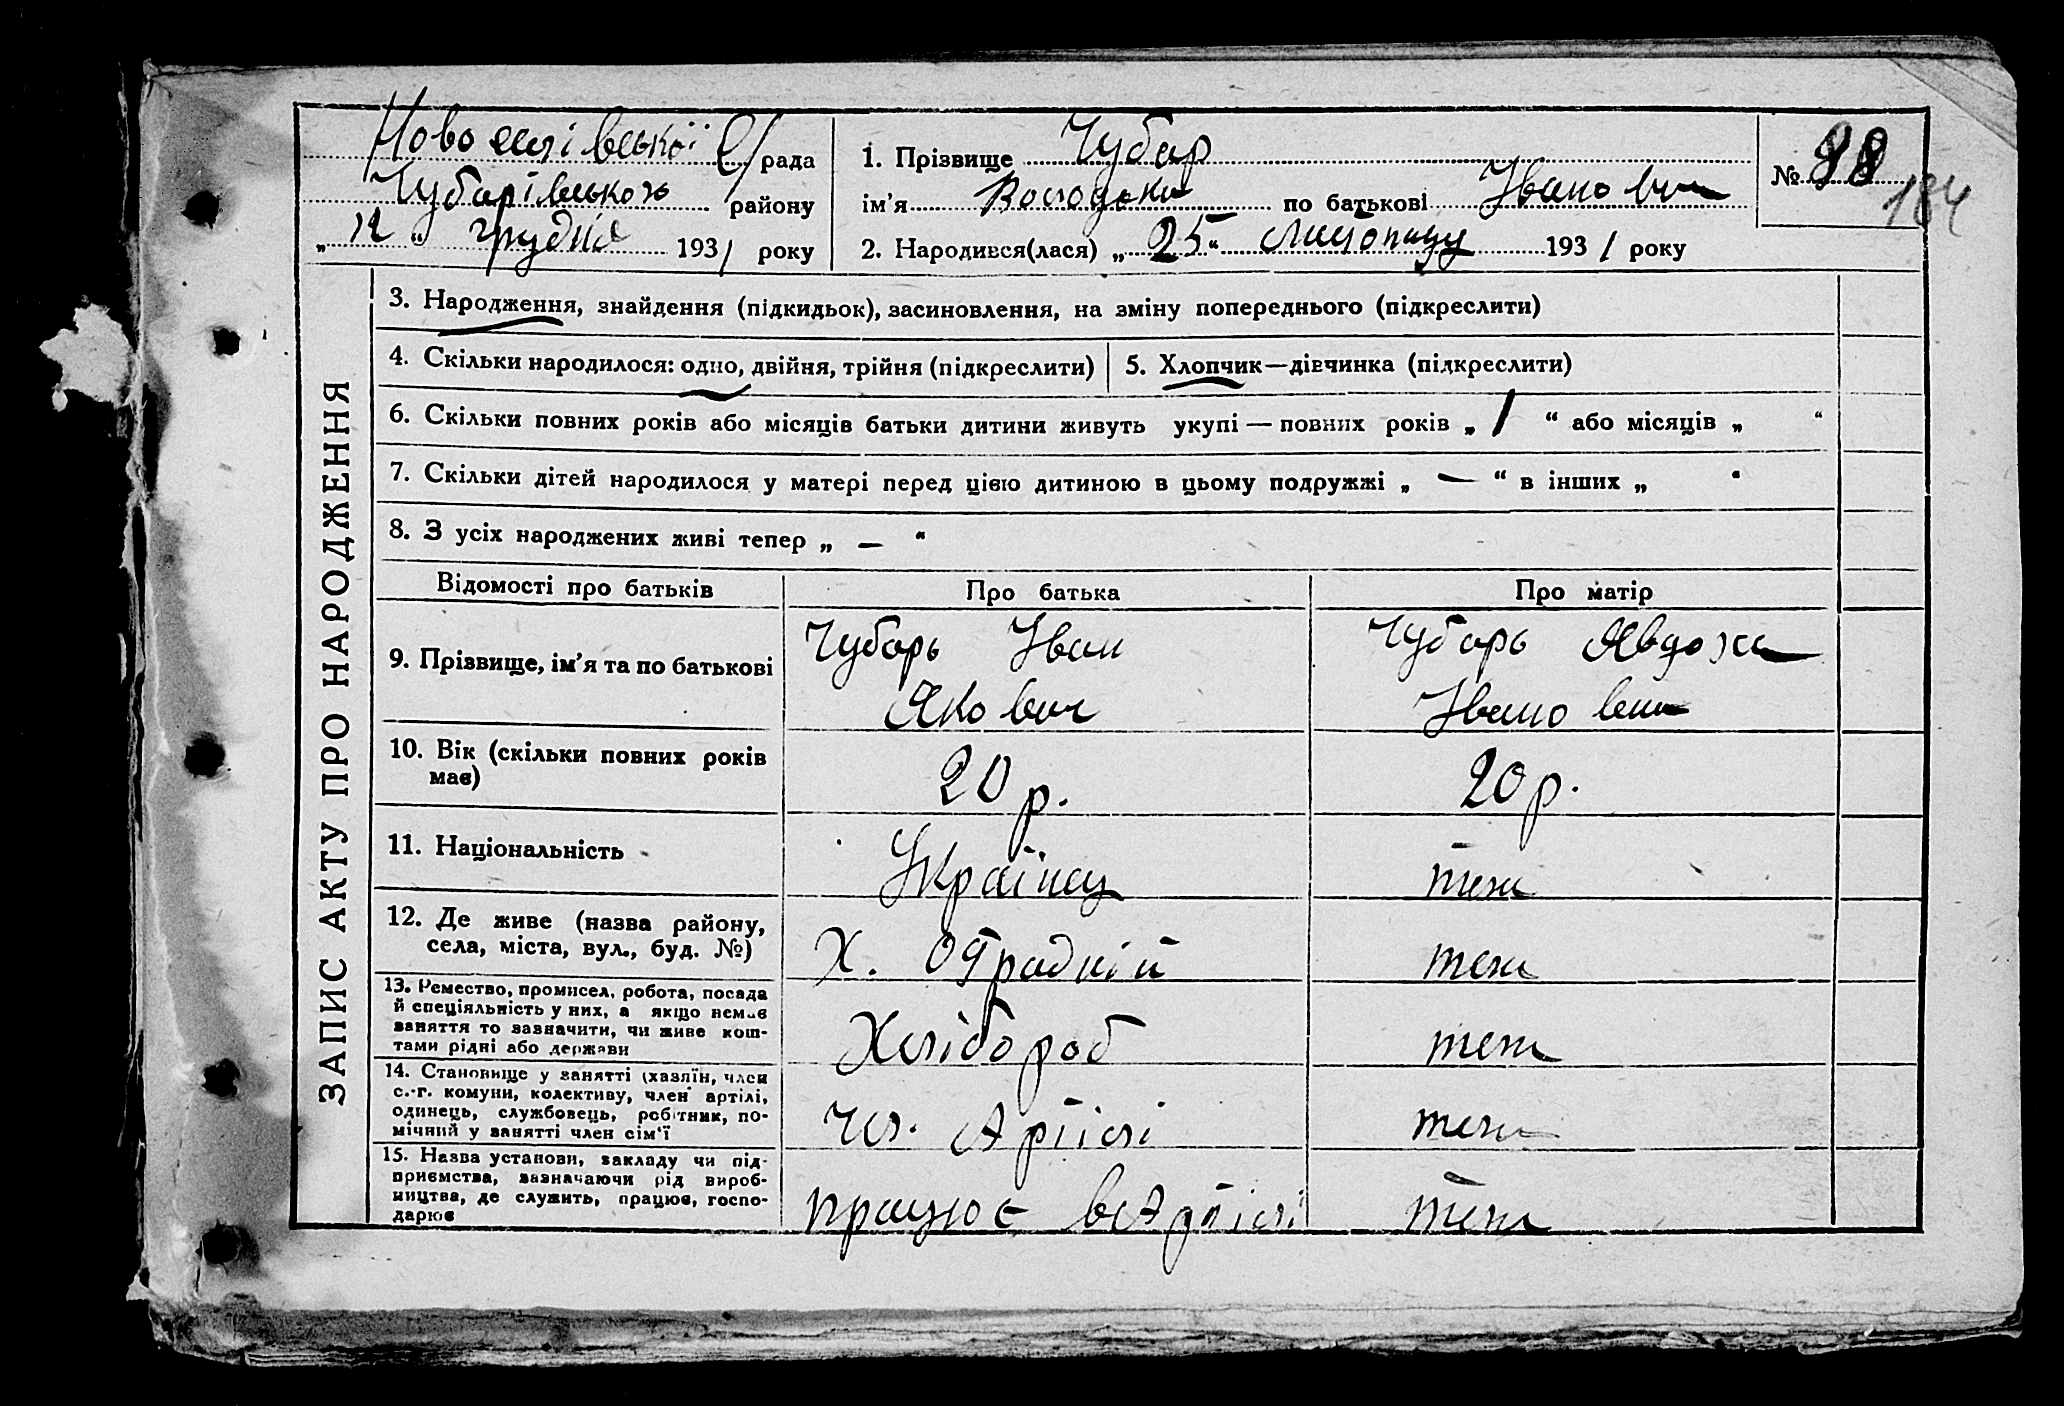 Ново
с/рада
Чубарівського району
„12“ грудня 1931 року
1. Прізвище Чубар
ім’я Володька по батькові Іванович
2. Народився(лася) „25“ листопаду 1931 року
№ 88
184
ЗАПИС АКТУ ПРО НАРОДЖЕННЯ
3. Народження, знайдення (підкидьок), засиновлення, на зміну попереднього (підкреслити)
4. Скільки народилося: одно, двійня, трійня (підкреслити)
5. Хлопчик—дівчинка (підкреслити)
6. Скільки повних років або місяців батьки дитини живуть укупі — повних років „ 1 “ або місяців „ “
7. Скільки дітей народилося у матері перед цією дитиною в цьому подружжі „ — “ в інших „ “
8. З усіх народжених живі тепер „ — “
Відомості про батьків
Про батька
Про матір
9. Прізвище, ім’я та по батькові
Чубарь Іван
Якович
Чубарь Явдоха
10. Вік (скільки повних років
має)
20 р.
20 р.
11. Національність
Українец
теж
12. Де живе (назва району,
села, міста, вул., буд. №)
Х. Отрадній
теж
13. Ремество, промисел, робота, посада
й спеціяльність у них, а якщо немає
заняття то зазначити, чи живе кош-
тами рідні або держави
Хлібороб
теж
14. Становище у занятті (хазяїн, член
с.-г. комуни, колективу, член артілі,
одинець, службовець, робітник, по-
мічний у занятті член сім’ї
Чл. Артілі
теж
15. Назва установи, закладу чи під-
приємства, зазначаючи рід вироб-
ництва, де служить, працює, госпо-
дарює
працює в Артілі
теж